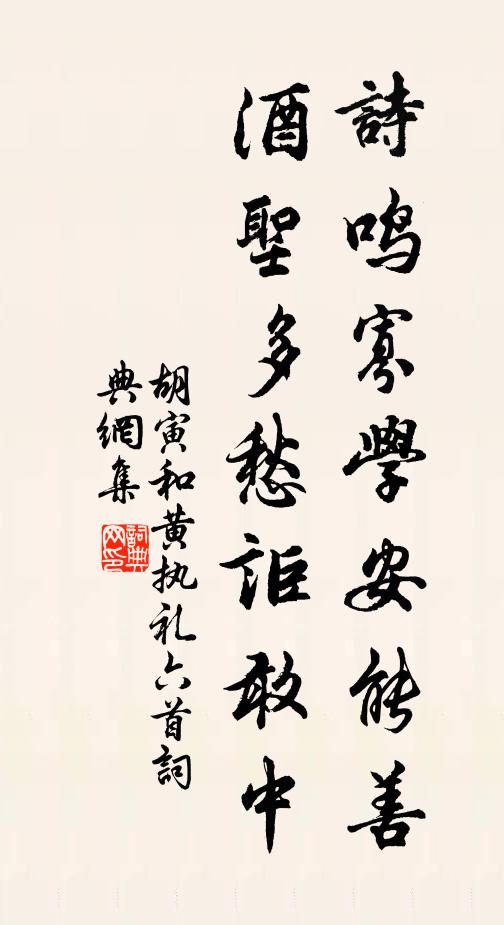 詩鳴寡學安能善
酒聖多愁詎敢中
胡寅和黄执礼六首詞
典網集
詞典
网印